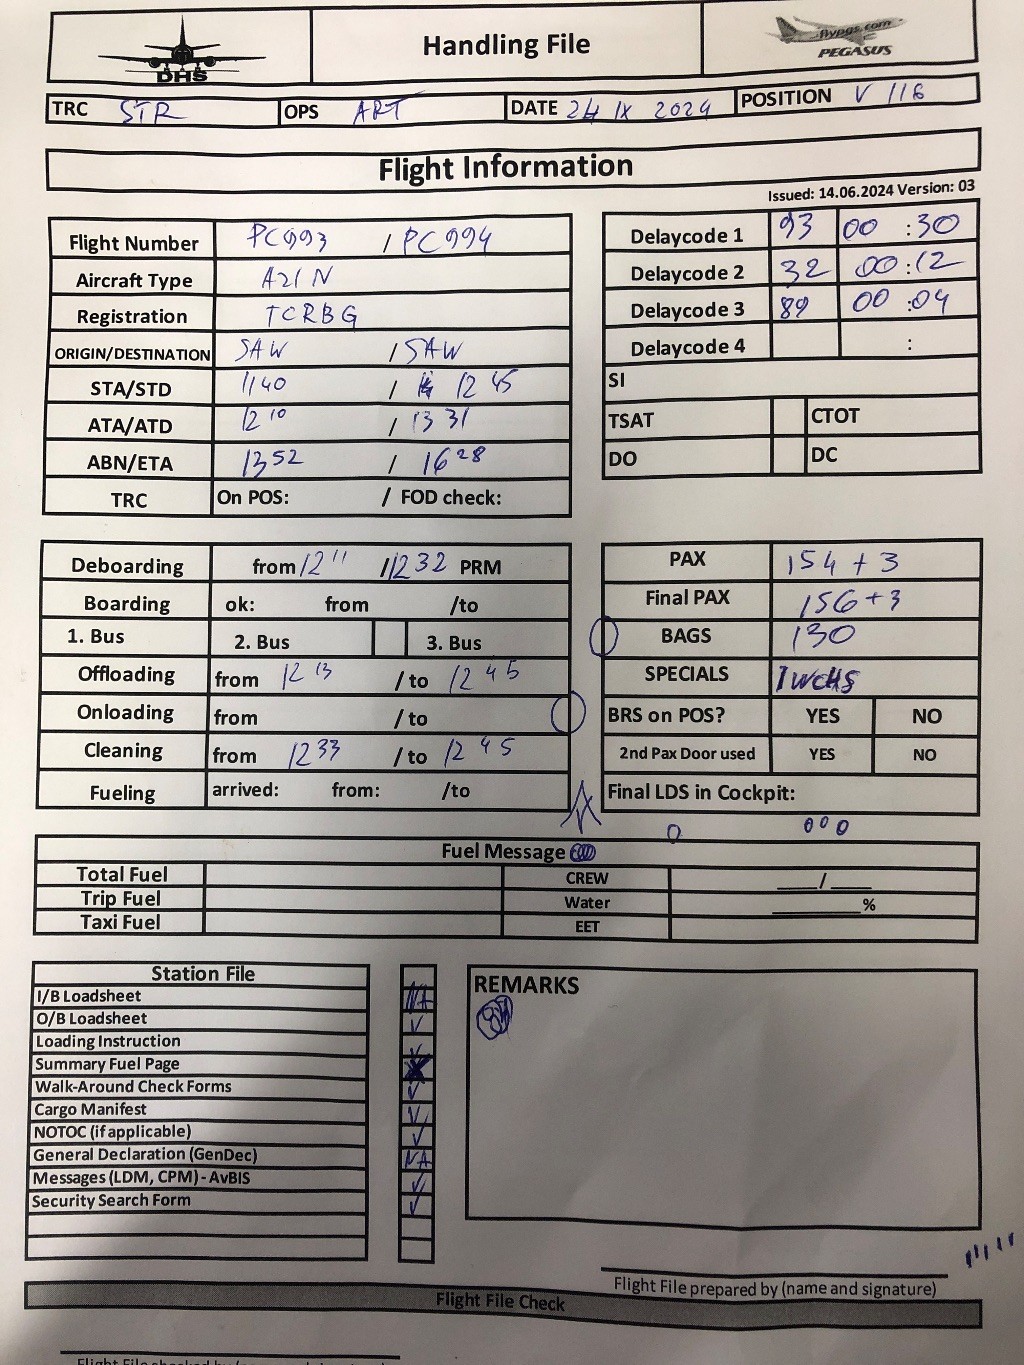 DHS
Handling File
flypgs.com
PEGASUS
TRC STR OPS ART DATE 24 IX 2024 POSITION V 116
Flight Information
Issued: 14.06.2024 Version: 03
Flight Number PC993 / PC994
Aircraft Type A21N
Registration TCRBG
ORIGIN/DESTINATION SAW / SAW
STA/STD 1140 / 1245
ATA/ATD 1210 / 1331
ABN/ETA 1352 / 1628
TRC On POS: / FOD check:
Delaycode 1 93 00 :30
Delaycode 2 32 00:12
Delaycode 3 89 00 :04
Delaycode 4 :
SI
TSAT CTOT
DO DC
Deboarding from 1211 / 1232 PRM
Boarding ok: from /to
1. Bus 2. Bus 3. Bus
Offloading from 1213 / to 1245
Onloading from / to
Cleaning from 1233 / to 1245
Fueling arrived: from: /to
PAX 154 + 3
Final PAX 156+3
BAGS 130
SPECIALS 1 WCHS
BRS on POS? YES NO
2nd Pax Door used YES NO
Final LDS in Cockpit:
Fuel Message
Total Fuel CREW ____/____
Trip Fuel Water _________%
Taxi Fuel EET
Station File
I/B Loadsheet NA
O/B Loadsheet ✓
Loading Instruction ✓
Summary Fuel Page
Walk-Around Check Forms ✓
Cargo Manifest ✓
NOTOC (if applicable) ✓
General Declaration (GenDec) NA
Messages (LDM, CPM) - AvBIS ✓
Security Search Form ✓
REMARKS
Flight File prepared by (name and signature)
Flight File Check